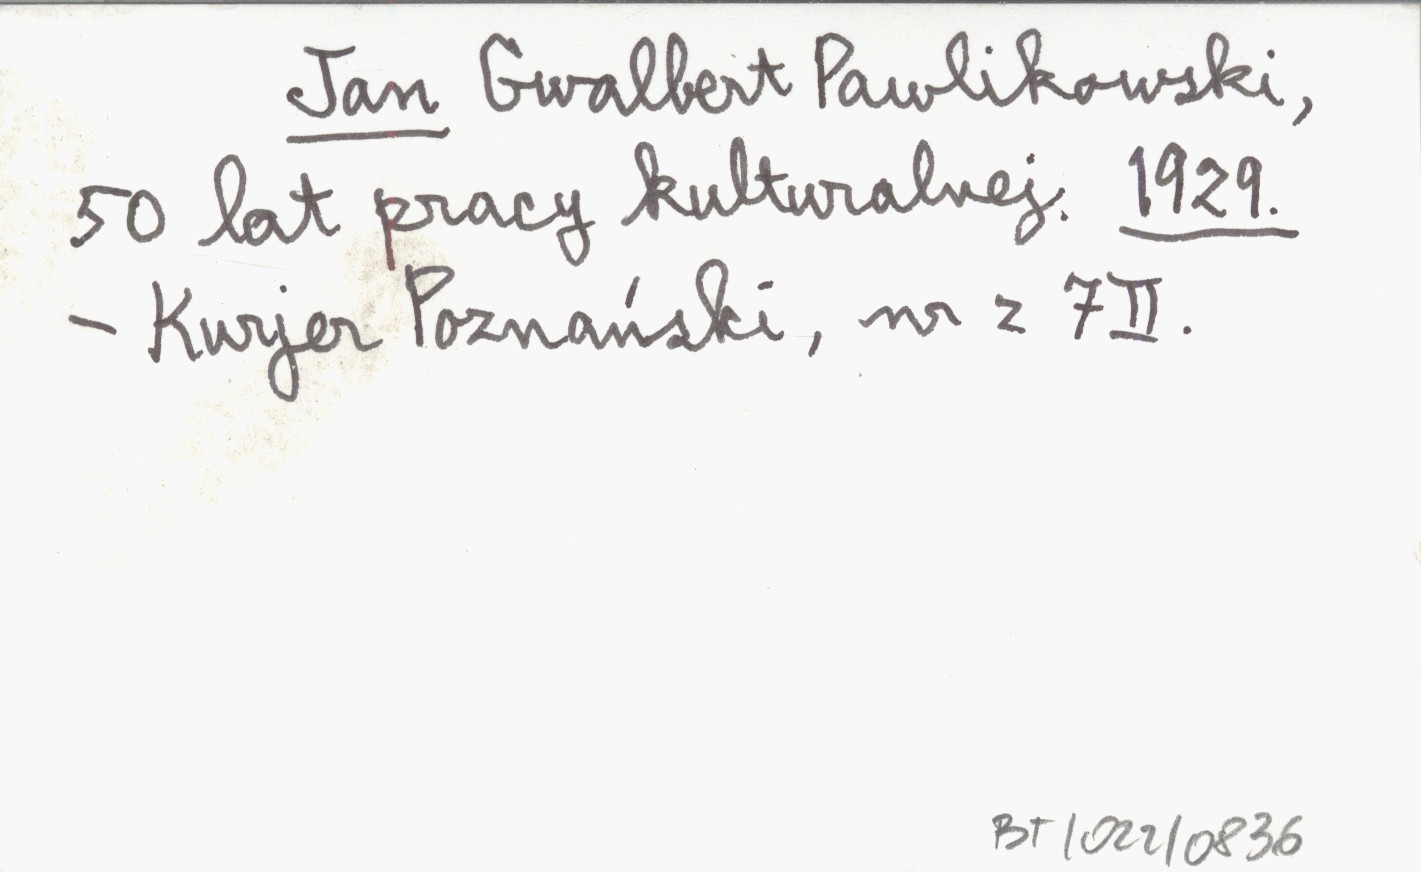 Jan Gwalbert Pawlikowski,
50 lat pracy kulturalnej. 1929.
- Kurjer Poznański, nr z 7 II.
BT/022/0836